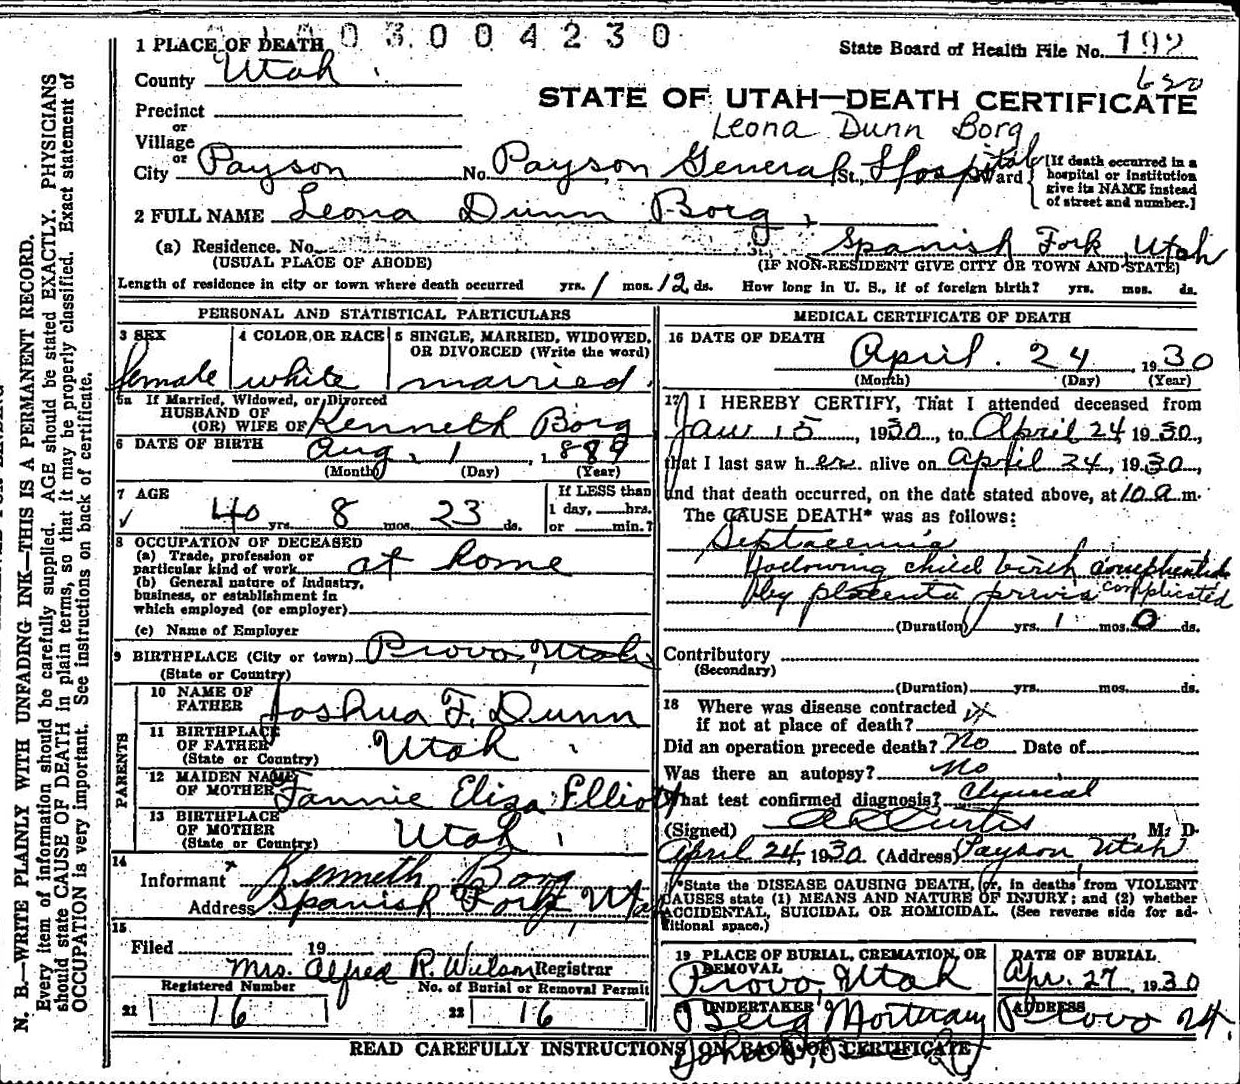 1 PLACE OF DEATH 03004230
State Board of Health File No. 192
County Utah
620
STATE OF UTAH—DEATH CERTIFICATE
Precinct
or
Leona Dunn Borg
Village
or
City Payson No. Payson General St., Hospital Ward
[If death occurred in a hospital or institution give its NAME instead of street and number.]
2 FULL NAME Leona Dunn Borg
(a) Residence. No. St. Spanish Fork, Utah
(USUAL PLACE OF ABODE) (IF NON-RESIDENT GIVE CITY OR TOWN AND STATE)
Length of residence in city or town where death occurred yrs. 1 mos. 12 ds. How long in U. S., if of foreign birth? yrs. mos. ds.
PERSONAL AND STATISTICAL PARTICULARS
3 SEX
female
4 COLOR OR RACE
white
5 SINGLE, MARRIED, WIDOWED,
OR DIVORCED (Write the word)
married
5a If Married, Widowed, or Divorced
HUSBAND OF
(OR) WIFE OF Kenneth Borg
6 DATE OF BIRTH Aug. 1, 1889
(Month) (Day) (Year)
7 AGE
✓ 40 yrs. 8 mos. 23 ds.
If LESS than
1 day, hrs.
or min.?
8 OCCUPATION OF DECEASED
(a) Trade, profession or
particular kind of work at home
(b) General nature of industry,
business, or establishment in
which employed (or employer)
(c) Name of Employer
9 BIRTHPLACE (City or town) Provo, Utah
(State or Country)
PARENTS
10 NAME OF
FATHER Joshua F. Dunn
11 BIRTHPLACE
OF FATHER Utah
(State or Country)
12 MAIDEN NAME
OF MOTHER Fannie Eliza Elliott
13 BIRTHPLACE
OF MOTHER Utah
(State or Country)
14
Informant Kenneth Borg
Address Spanish Fork, Utah
15
Filed 19
Mrs. Alfred R. Wilson Registrar
Registered Number No. of Burial or Removal Permit
21 16 22 16
MEDICAL CERTIFICATE OF DEATH
16 DATE OF DEATH
April 24 1930
(Month) (Day) (Year)
17 I HEREBY CERTIFY, That I attended deceased from
Jan 15, 1930, to April 24 1930,
that I last saw her alive on April 24, 1930,
and that death occurred, on the date stated above, at 10 a m.
The CAUSE DEATH* was as follows:
Septacemia
following child birth complicated
by placenta previa complicated
(Duration) yrs. 1 mos. 0 ds.
Contributory
(Secondary)
(Duration) yrs. mos. ds.
18 Where was disease contracted
if not at place of death?
Did an operation precede death? No Date of
Was there an autopsy? No
What test confirmed diagnosis? Clinical
(Signed) Curtis M. D.
April 24, 1930. (Address) Payson, Utah
*State the DISEASE CAUSING DEATH, or, in deaths from VIOLENT
CAUSES state (1) MEANS AND NATURE OF INJURY; and (2) whether
ACCIDENTAL, SUICIDAL OR HOMICIDAL. (See reverse side for ad-
ditional space.)
19 PLACE OF BURIAL, CREMATION, OR
REMOVAL
Provo, Utah
DATE OF BURIAL
Apr. 27, 1930
20 UNDERTAKER
Berg Mortuary
ADDRESS
Provo
READ CAREFULLY INSTRUCTIONS ON BACK OF CERTIFICATE
N. B.—WRITE PLAINLY WITH UNFADING INK—THIS IS A PERMANENT RECORD.
Every item of information should be carefully supplied. AGE should be stated EXACTLY. PHYSICIANS
should state CAUSE OF DEATH in plain terms, so that it may be properly classified. Exact statement of
OCCUPATION is very important. See instructions on back of certificate.